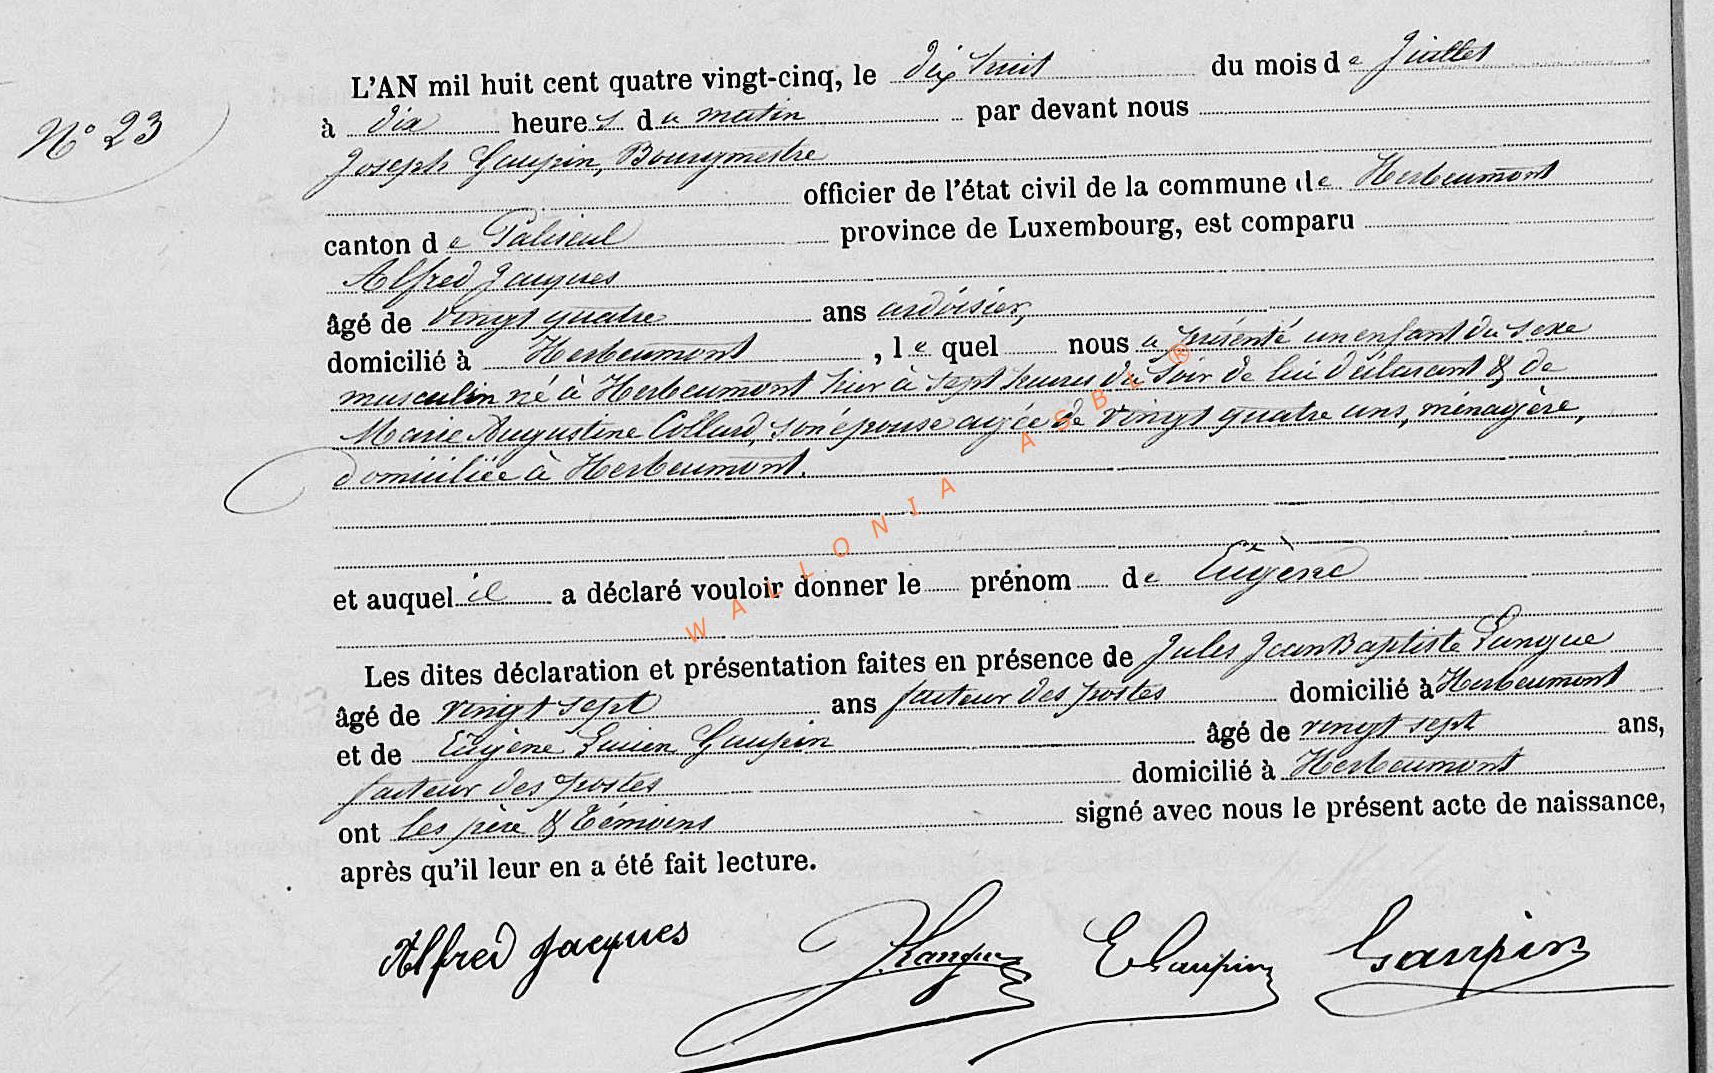 N° 23
L'AN mil huit cent quatre vingt-cinq, le dix huit du mois de Juillet
à dix heures du matin par devant nous
Joseph Gaupin, Bourgmestre
officier de l'état civil de la commune de Herbeumont
canton de Paliseul province de Luxembourg, est comparu
Alfred Jacques
âgé de vingt quatre ans ardoisier,
domicilié à Herbeumont, lequel nous a présenté un enfant du sexe
musculin né à Herbeumont hier à sept heures du soir de lui déclarant & de
Marie Augustine Collard, son épouse agée de vingt quatre ans, ménagère,
domiciliée à Herbeumont.
et auquel il a déclaré vouloir donner le prénom de Eugène
Les dites déclaration et présentation faites en présence de Jules Jean Baptiste Langue
âgé de vingt sept ans facteur des postes domicilié à Herbeumont
et de Eugène Lucien Gaupin âgé de vingt sept ans,
facteur des postes domicilié à Herbeumont
ont les père & témoins signé avec nous le présent acte de naissance,
après qu'il leur en a été fait lecture.
Alfred Jacques J. Langue E Gaupin Gaupin
WALLONIA ASBL ®